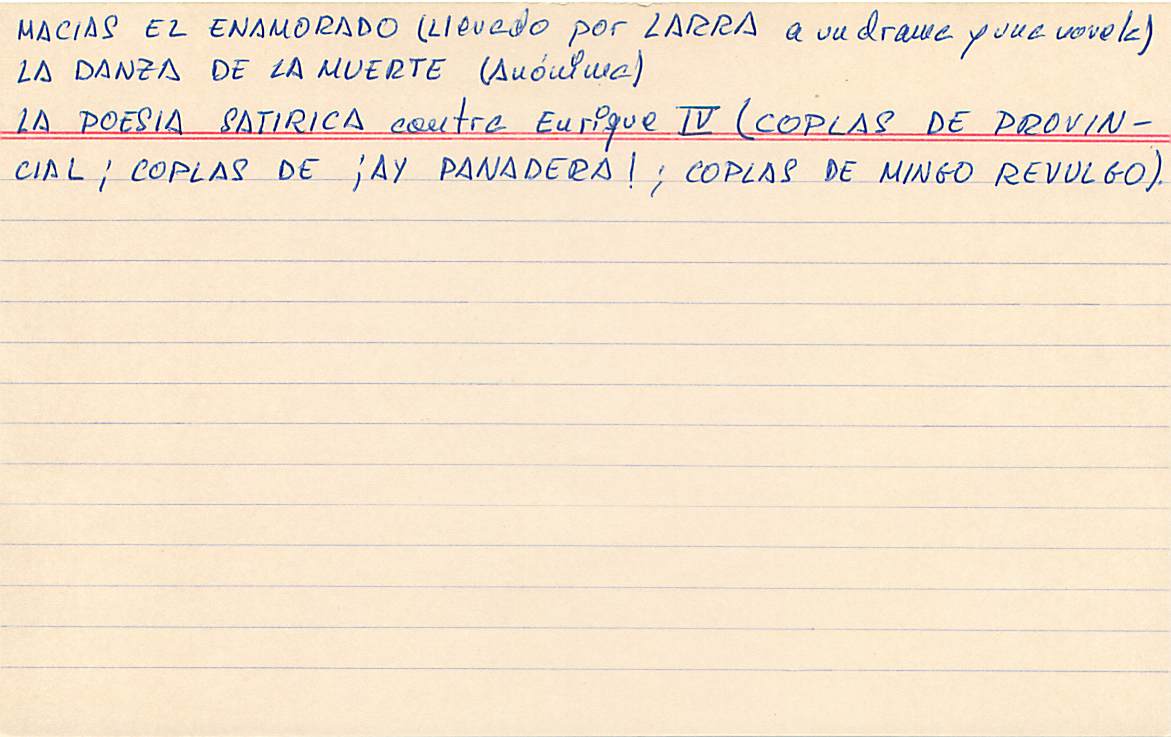 MACIAS EL ENAMORADO (LLevado por LARRA a un drama y una novela)
LA DANZA DE LA MUERTE (Anónima)
LA POESIA SATIRICA contra Enrique IV (COPLAS DE PROVIN-
CIAL; COPLAS DE ¡AY PANADERA!; COPLAS DE MINGO REVULGO).